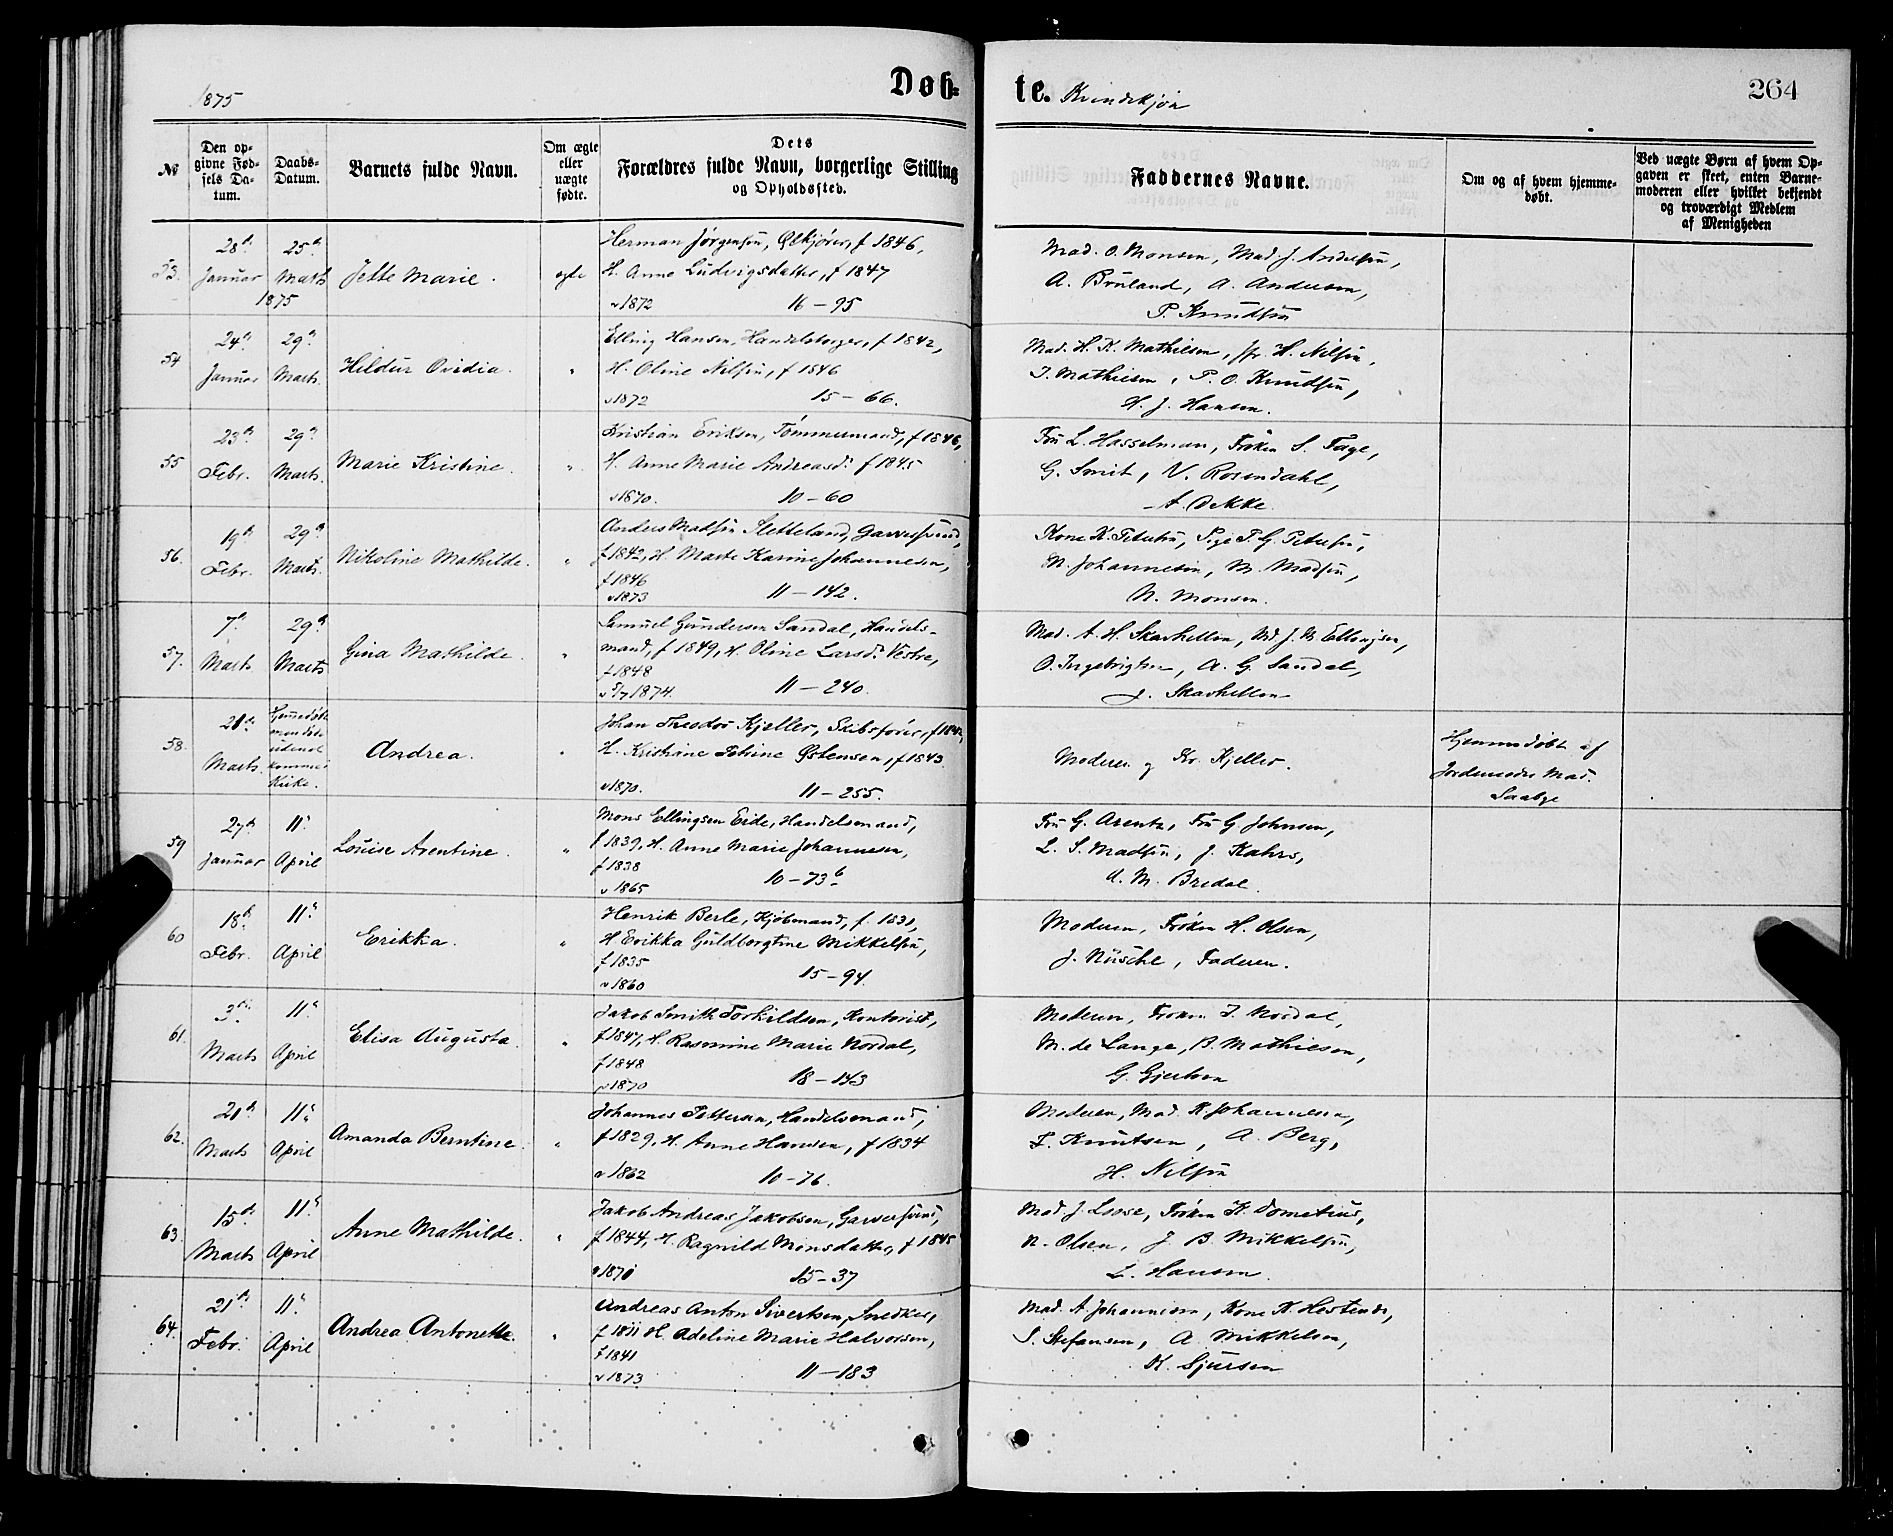 1875
Døb=
te. Kvindekjøn
264
№
Den op-
givne Fød-
sels Da-
tum.
Daabs-
Datum.
Barnets fulde Navn.
Om ægte
eller
uægte
fødte.
Dets
Forældres fulde Navn, borgerlige Stilling
og Opholdssted.
Faddernes Navne.
Om og af hvem hjemme-
døbt.
Ved uægte Børn af hvem Op-
gaven er skeet, enten Barne-
moderen eller hvilket bekjendt
og troværdigt Medlem
af Menigheden
53. 28de Januar 1875
25de Marts
Jette Marie.
egte
Herman Jørgensen, Ølkjører, f 1846,
H. Anne Ludvigsdatter, f 1847
v 1872 16 – 95
Mad. O. Monsen, Mad. J. Andersen,
A. Bruland, A. Andersen,
P. Knudsen
54 24de Januar
29de Marts.
Hildur Ovidia.
"
Elling Hansen, Handelsborger, f 1842,
H. Oline Nilsen, f 1846
v 1872 15 – 66.
Mad. H. K. Mathiesen, Jfr. H. Nilsen,
I. Mathiesen, P. O. Knudsen,
H. J. Hansen.
55 23de Febr.
29de Marts.
Marie Kristine.
"
Kristian Eriksen, Tømmermand, f 1846,
H. Anne Marie Andreasd. f 1845
v 1870. 10 – 60
Fru L. Hasselman, Frøken S. Fage,
G. Smit, V. Rosendahl,
A. Dekke.
56. 19de Febr.
29de Marts.
Nikoline Mathilde.
"
Anders Madsen Sletteland, Garversvend,
f 1842, H. Marte Karine Johannesen,
f 1846
v 1873 11 – 142.
Kone K. Petersen, Pige T. G. Petersen,
N. Johannesen, M. Madsen,
N. Monsen.
57. 7de Marts
29de Marts
Gina Mathilde.
"
Samuel Gundersen Sandal, Handels-
mand, f 1849, H. Oline Larsd. Vestre,
f 1848
v 5/7 1874. 11 – 240.
Mad. A. H. Skarhellen, Md J. M. Ellingsen,
O. Ingebrigtsen, A. G. Sandal,
J. Skarhellen
58. 21de Marts.
Hjemmedøbt
men døde
uden at
komme i
Kirke.
Andrea.
"
Johan Theodor Kjeller, Skibsfører, f 1842,
H. Kristiane Petrine Østensen, f 1843
v 1870. 11 – 255.
Moderen og Kr. Kjeller.
Hjemmedøbt af
Jordemoder Mad.
Saabye
59 27de Januar
11te April
Louise Arentine.
"
Mons Ellingsen Eide, Handelsmand,
f 1839, H. Anne Marie Johannesen,
f 1838
v 1865 10 – 73 b
Fru G. Arentz, Fru G. Johnsen,
L. S. Madsen, J. Kahrs,
A. M. Bredal.
60 18de Febr.
11te April
Erikka.
"
Henrik Berle, Kjøbmand, f. 1831,
H Erikka Guldborgtine Mikkelsen,
f 1835
v 1860 15 – 94.
Moderen, Frøken H. Olsen,
J. Nüschel, Faderen.
61. 3die Marts
11te April
Elisa Augusta.
"
Jakob Smith Torkildsen, Kontorist,
f 1847, H. Rasmine Marie Nordal,
f 1848
v 1870 18 – 143
Moderen, Frøken I. Nordal,
M. de Lange, B. Mathiesen,
G. Gjertsen
62. 21de Marts
11te April
Amanda Berntine.
"
Johannes Pettersen, Handelsmand,
f 1829, H. Anne Hansen, f 1834
v 1862 10 – 76.
Moderen, Mad. K. Johannesen,
L. Knutsen, A. Berg,
H. Nilsen
63. 15de Marts
11te April
Anne Mathilde.
"
Jakob Andreas Jakobsen, Garversvend,
f 1844, H. Ragnild Monsdatter, f 1845
v 1870 15 – 37
Mad J. Loose, Frøken K. Dometius,
N. Olsen, J. B. Mikkelsen,
L. Hansen.
64. 21de Febr.
11te April
Andrea Antonette.
"
Andreas Anton Sivertsen, Snedker,
f 1811 H. Adeline Marie Halvorsen,
f 1841
v 1873 11 – 183
Mad. A. Johannesen, Kone K. Hestenes,
S. Stefansen, A. Mikkelsen,
K. Sjursen